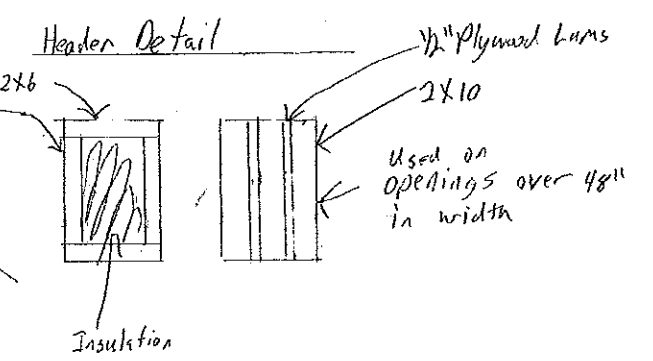 Header Detail
1/2" Plywood Lams
2X6
2X10
Used on
openings over 48"
in width
Insulation